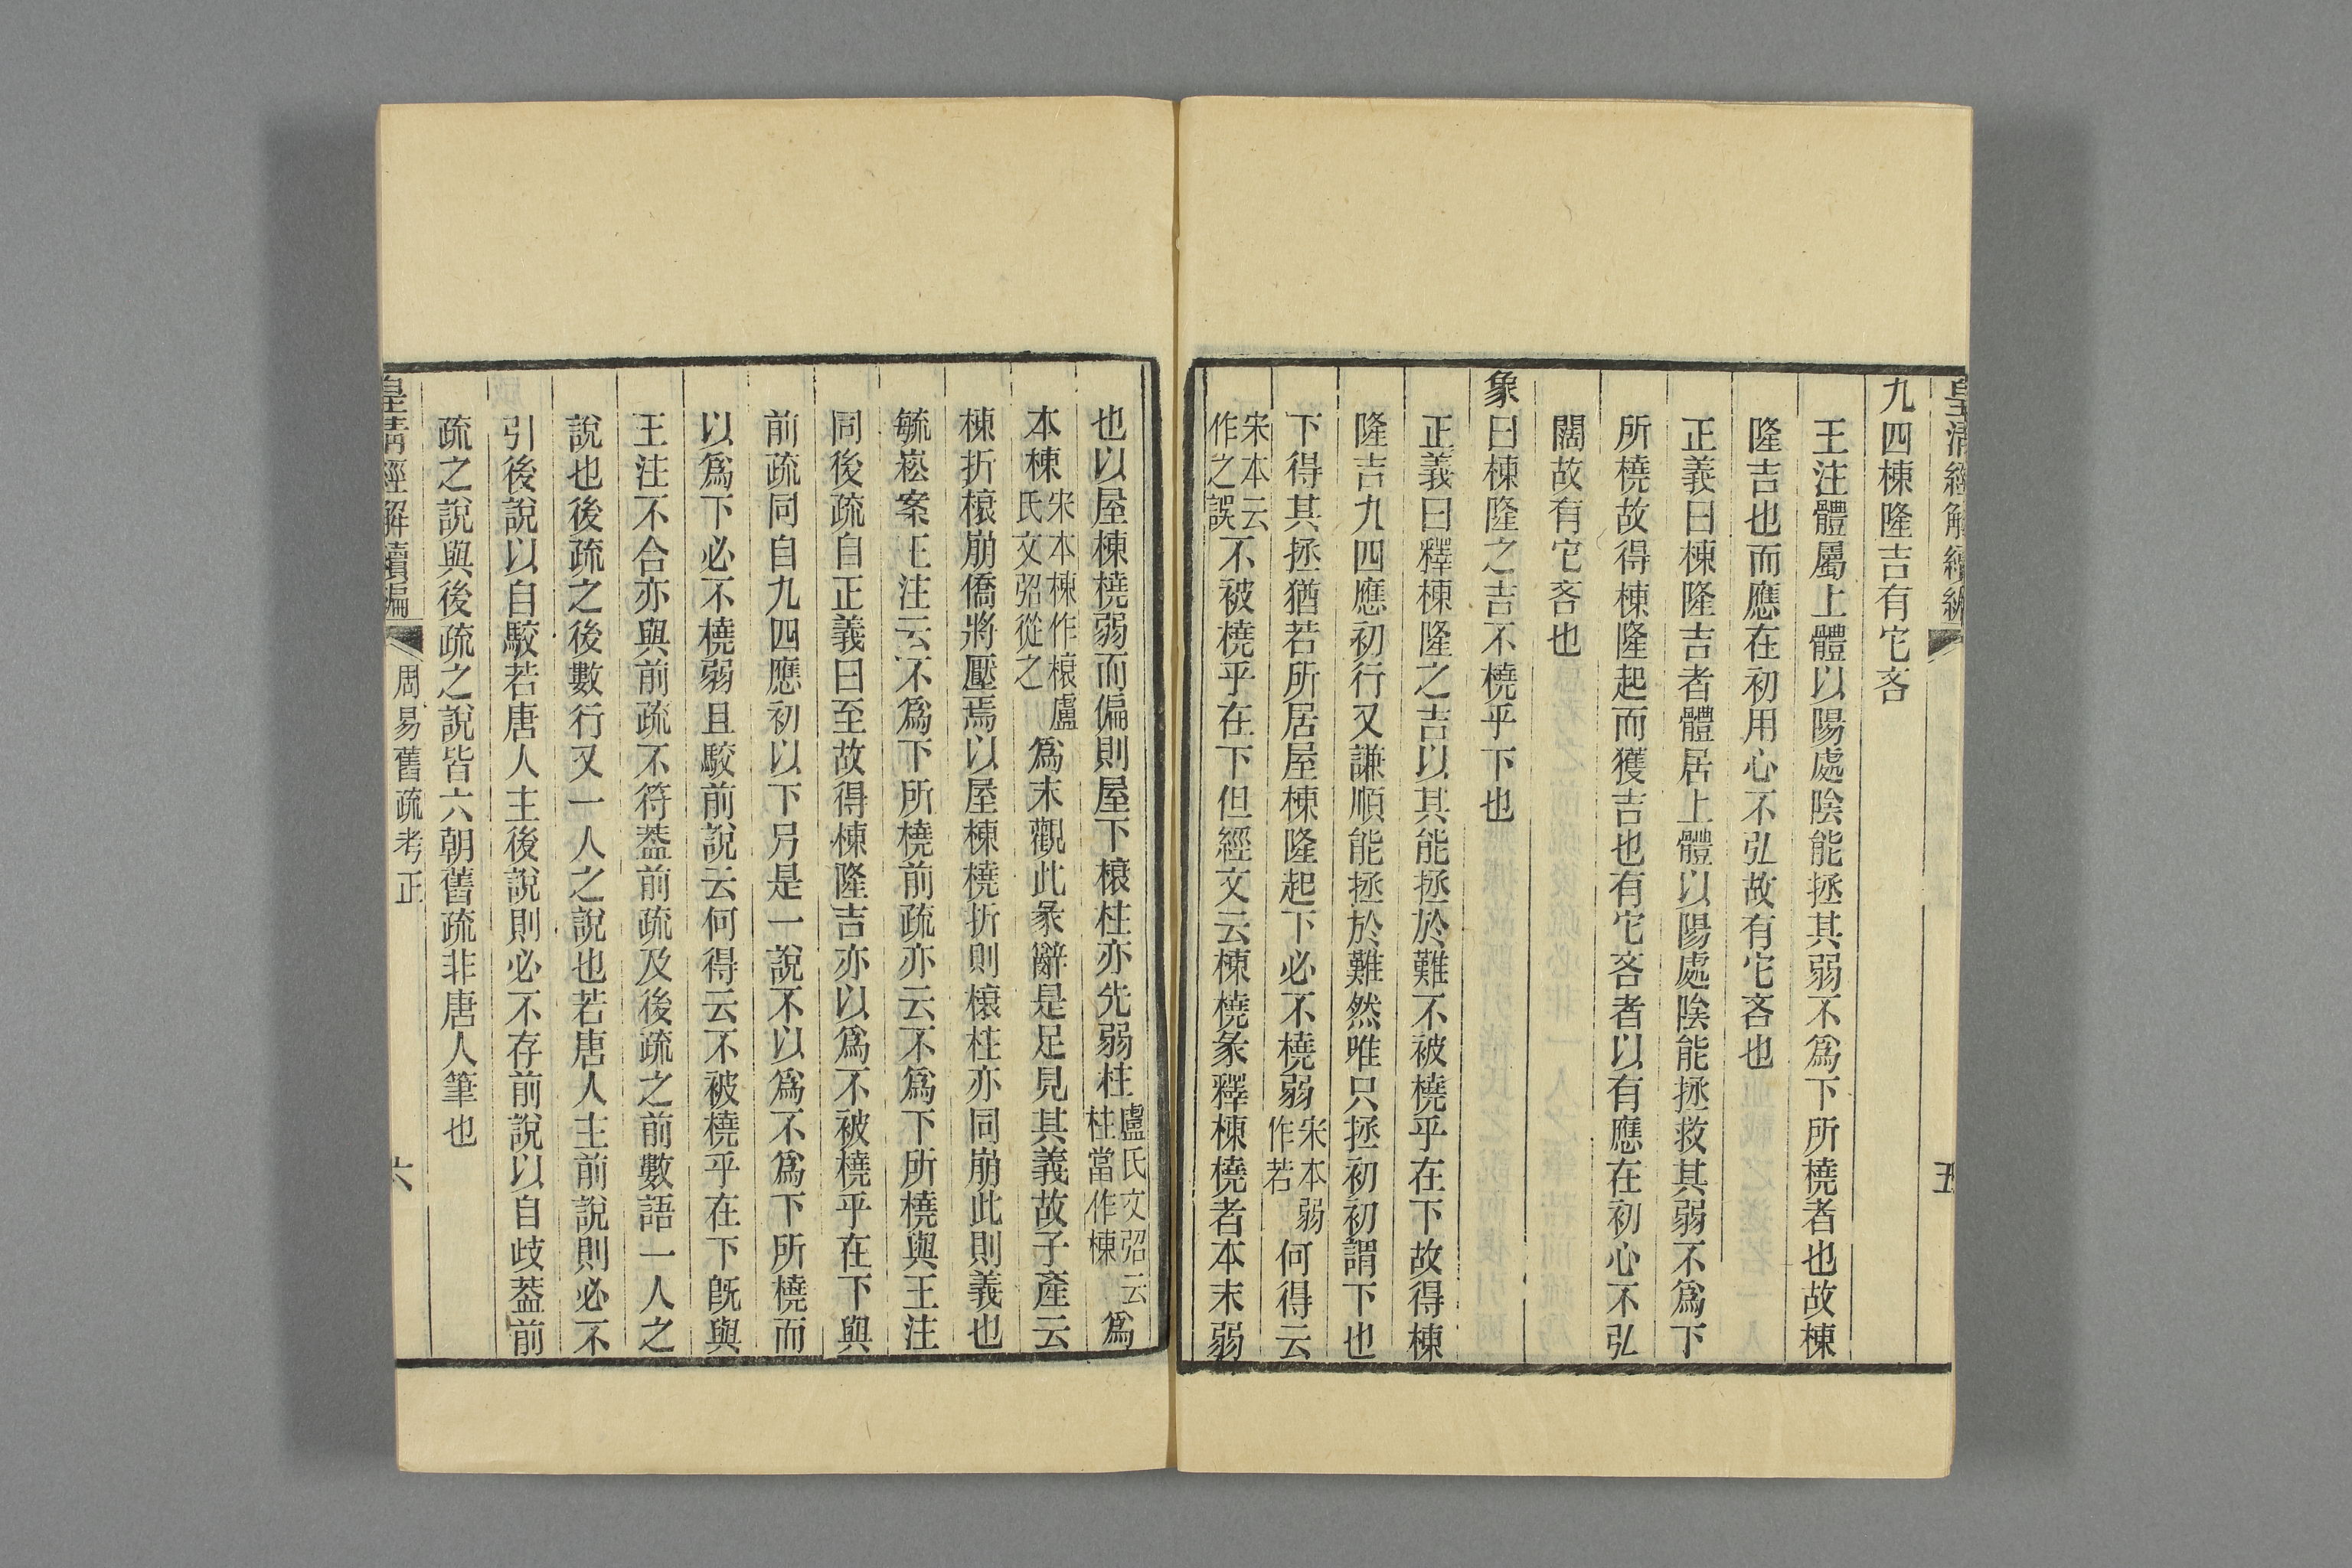 皇清經解續編
五
九四棟隆吉有它吝
王注體屬上體以陽處陰能拯其弱不爲下所橈者也故棟
隆吉也而應在初用心不弘故有它吝也
正義曰棟隆吉者體居上體以陽處陰能拯救其弱不爲下
所橈故得棟隆起而獲吉也有它吝者以有應在初心不弘
闊故有它吝也
象曰棟隆之吉不橈乎下也
正義曰釋棟隆之吉以其能拯於難不被橈乎在下故得棟
隆吉九四應初行又謙順能拯於難然唯只拯初初謂下也
下得其拯猶若所居屋棟隆起下必不橈弱宋本弱作若何得云
宋本云作之誤不被橈乎在下但經文云棟橈彖釋棟橈者本末弱
也以屋棟橈弱而偏則屋下榱柱亦先弱柱盧氏文弨云柱當作棟爲
本棟宋本棟作榱盧氏文弨從之爲末觀此彖辭是足見其義故子產云
棟折榱崩僑將壓焉以屋棟橈折則榱柱亦同崩此則義也
毓崧案王注云不爲下所橈前疏亦云不爲下所橈與王注
同後疏自正義曰至故得棟隆吉亦以爲不被橈乎在下與
前疏同自九四應初以下另是一說不以爲不爲下所橈而
以爲下必不橈弱且駮前說云何得云不被橈乎在下旣與
王注不合亦與前疏不符葢前疏及後疏之前數語一人之
說也後疏之後數行又一人之說也若唐人主前說則必不
引後說以自駮若唐人主後說則必不存前說以自歧葢前
疏之說與後疏之說皆六朝舊疏非唐人筆也
皇清經解續編
周易舊疏考正
六